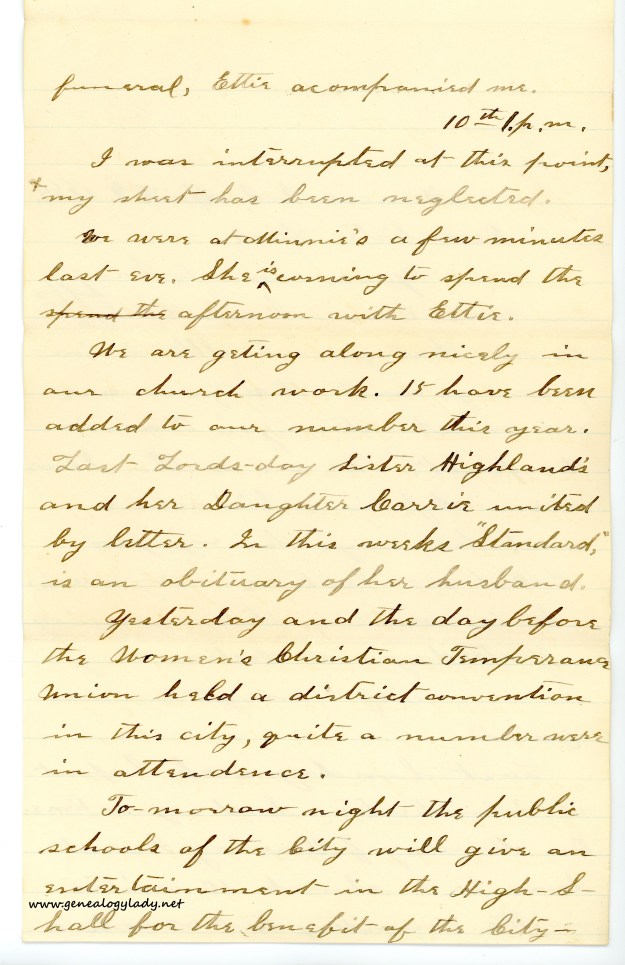 funeral, Ettie acompanied me.
10th 1.p.m.
I was interrupted at this point,
+ my sheet has been neglected.
We were at Minnie's a few minutes
last eve. She is coming to spend the
spend the afternoon with Ettie.
We are geting along nicely in
our church work. 15 have been
added to our number this year.
Last Lords-day Sister Highland's
and her Daughter Carrie united
by letter. In this weeks "Standard,"
is an obituary of her husband.
Yesterday and the day before
the Women's Christian Temperance
Union held a district convention
in this city, quite a number were
in attendence.
To-morrow night the public
schools of the City will give an
entertainment in the High-S-
www.genealogylady.net
hall for the benefit of the City-